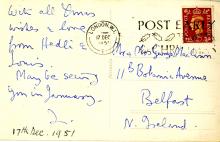 With all Xmas
wishes & love
from Hedli &
Louis.
May be seeing
you in January.
L.
17th Dec. 1951
POST
LONDON. W.1.
17 DEC
1951
Mrs George MacCann
Botanic Avenue
Belfast
N. Ireland.